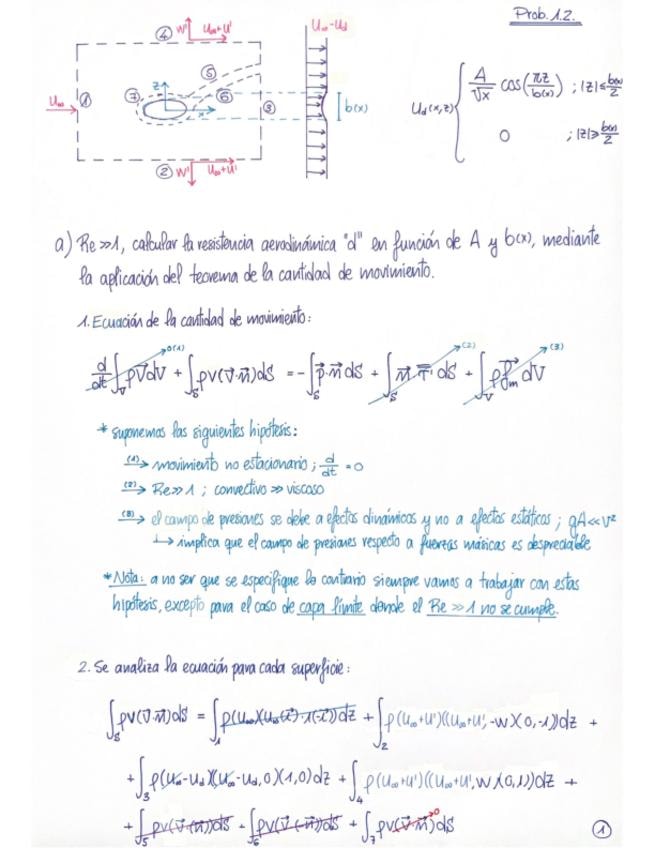 Prob. 1.2.
④ W' U∞+U' U∞-Ud
⑤
U∞ ① ⑦ z x ⑥ ③ b(x)
② W' U∞+U'
Ud(x,z) { A/√x cos(πz/b(x)) ; |z|≤b(x)/2
0 ; |z|≥b(x)/2
a) Re≫1, calcular la resistencia aerodinámica "d" en función de A y b(x), mediante
la aplicación del teorema de la cantidad de movimiento.
1. Ecuación de la cantidad de movimiento:
d/dt ∫_V ρV⃗dV + ∫_S ρV(V⃗·n⃗)dS = -∫_S p⃗·n⃗ dS + ∫_S n⃗ τ' dS + ∫_V ρf⃗m dV
0(1) (2) (3)
* suponemos las siguientes hipótesis:
(1)→ movimiento no estacionario; d/dt = 0
(2)→ Re≫1 ; convectivo ≫ viscoso
(3)→ el campo de presiones se debe a efectos dinámicos y no a efectos estáticos ; gA≪V²
↳ implica que el campo de presiones respecto a fuerzas másicas es despreciable
* Nota: a no ser que se especifique lo contrario siempre vamos a trabajar con estas
hipótesis, excepto para el caso de capa límite donde el Re≫1 no se cumple.
2. Se analiza la ecuación para cada superficie:
∫_S ρV(V⃗·n⃗)dS = ∫_1 ρ(U∞)(U∞(i⃗)·1(-i⃗))dz + ∫_2 ρ(U∞+U')((U∞+U',-W)(0,-1))dz +
+ ∫_3 ρ(U∞-Ud)(U∞-Ud,0)(1,0)dz + ∫_4 ρ(U∞+U')((U∞+U',W)(0,1))dz +
+ ∫_5 ρV(V⃗·(n⃗))dS - ∫_6 ρV(V⃗·(-n⃗))dS + ∫_7 ρV(V⃗·n⃗)dS 0
①